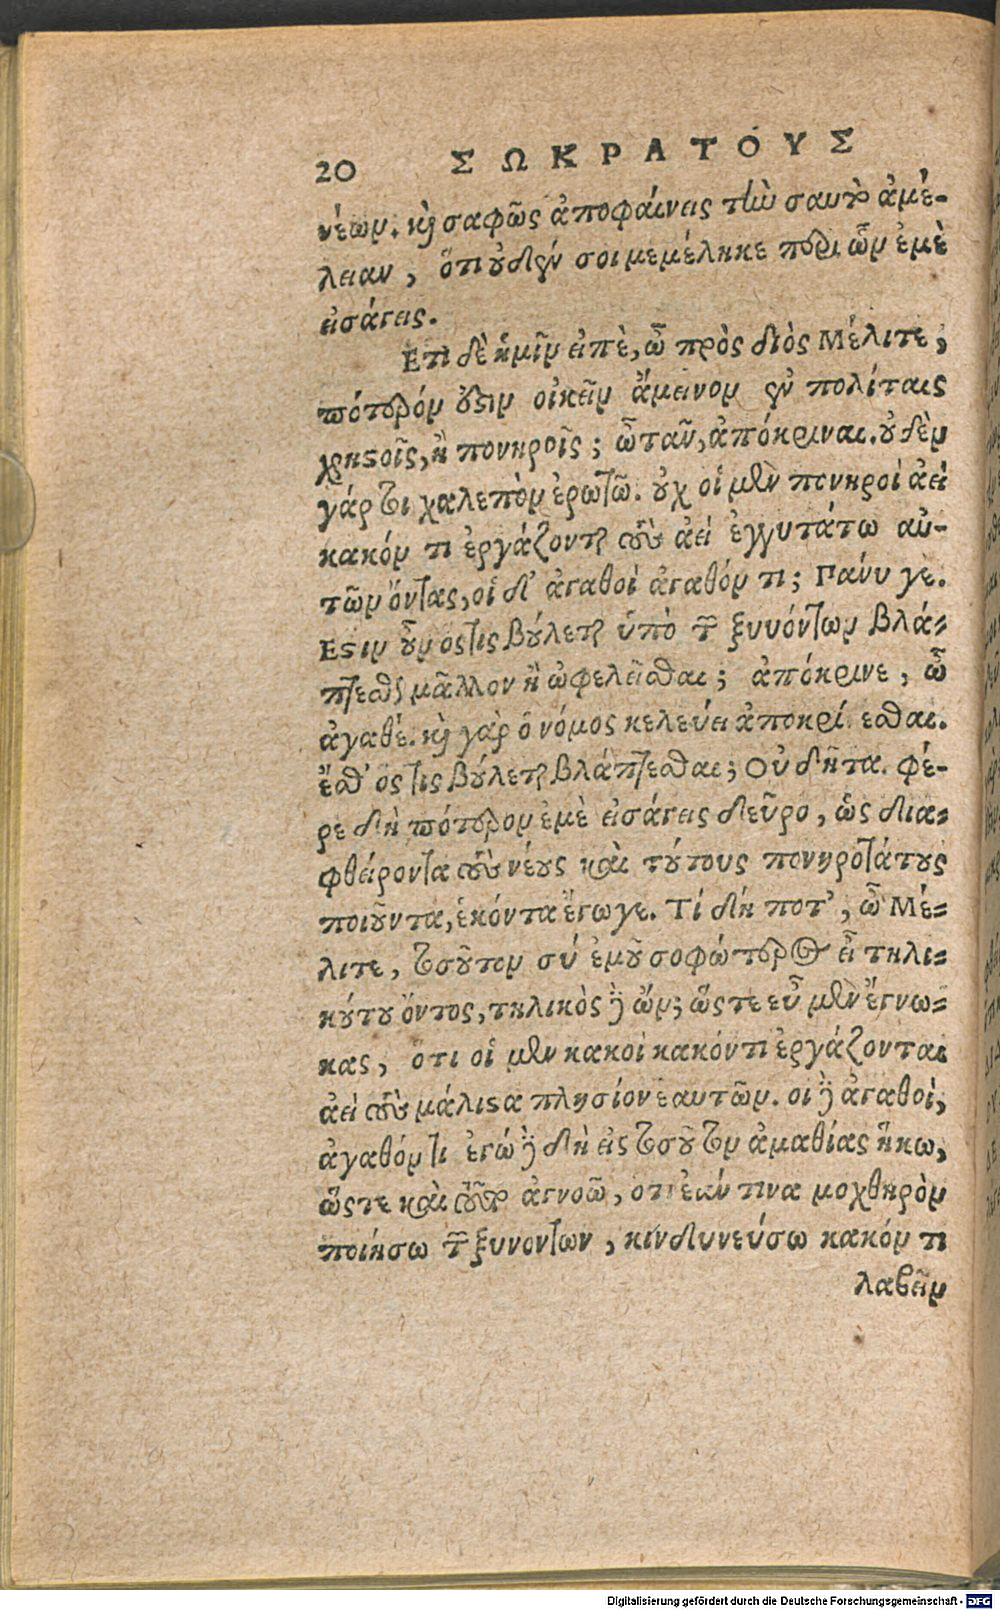 20 ΣΩΚΡΑΤΟΥΣ
νέων. καὶ σαφῶς ἀποφαίνεις τὴν σαυτοῦ ἀμέ-
λειαν, ὅτι οὐδέν σοι μεμέληκε περὶ ὧν ἐμὲ
εἰσάγεις.
Ετι δὲ ἡμῖν εἰπὲ, ὦ πρὸς διὸς Μέλιτε,
πότερόν ὀξιν οἰκεῖν ἄμεινον ἐν πολίταις
χρηστοῖς, ἢ πονηροῖς; ὦ ταῦ, ἀπόκριναι. οὐδὲν
γάρ τι χαλεπὸν ἐρωτῶ. οὐχ οἱ μὲν πονηροὶ ἀεὶ
κακόν τι ἐργάζονται τοὺς ἀεὶ ἐγγυτάτω αὐ-
τῶν ὄντας, οἱ δ' ἀγαθοὶ ἀγαθόν τι; Πάνυ γε.
Εστιν οὖν ὅστις βούλεται ὑπὸ τῶν ξυνόντων βλά-
πτεσθαι μᾶλλον ἢ ὠφελεῖσθαι; ἀπόκρινε, ὦ
ἀγαθέ. καὶ γὰρ ὁ νόμος κελεύει ἀποκρί εσθαι.
ἔσθ' ὅστις βούλεται βλάπτεσθαι; Οὐ δῆτα. φέ-
ρε δὴ πότερον ἐμὲ εἰσάγεις δεῦρο, ὡς δια-
φθείροντα τοὺς νέους καὶ τούτους πονηροτάτους
ποιοῦντα, ἑκόντα ἔγωγε. Τί δή ποτ', ὦ Μέ-
λιτε, τοσοῦτον σύ ἐμοῦ σοφώτερος εἶ τηλι-
κούτου ὄντος, τηλικὸς δὲ ὤν; ὥστε εὖ μὲν ἔγνω-
κας, ὅτι οἱ μὲν κακοὶ κακόν τι ἐργάζονται
ἀεὶ τοὺς μάλιστα πλησίον ἑαυτῶν. οἱ δὲ ἀγαθοὶ,
ἀγαθόν τι ἐγώ δὲ δὴ εἰς τοσοῦτον ἀμαθίας ἥκω,
ὥστε καὶ τοῦτο ἀγνοῶ, ὅτι ἐάν τινα μοχθηρὸν
ποιήσω τῶν ξυνόντων, κινδυνεύσω κακόν τι
λαβεῖν
Digitalisierung gefördert durch die Deutsche Forschungsgemeinschaft - DFG